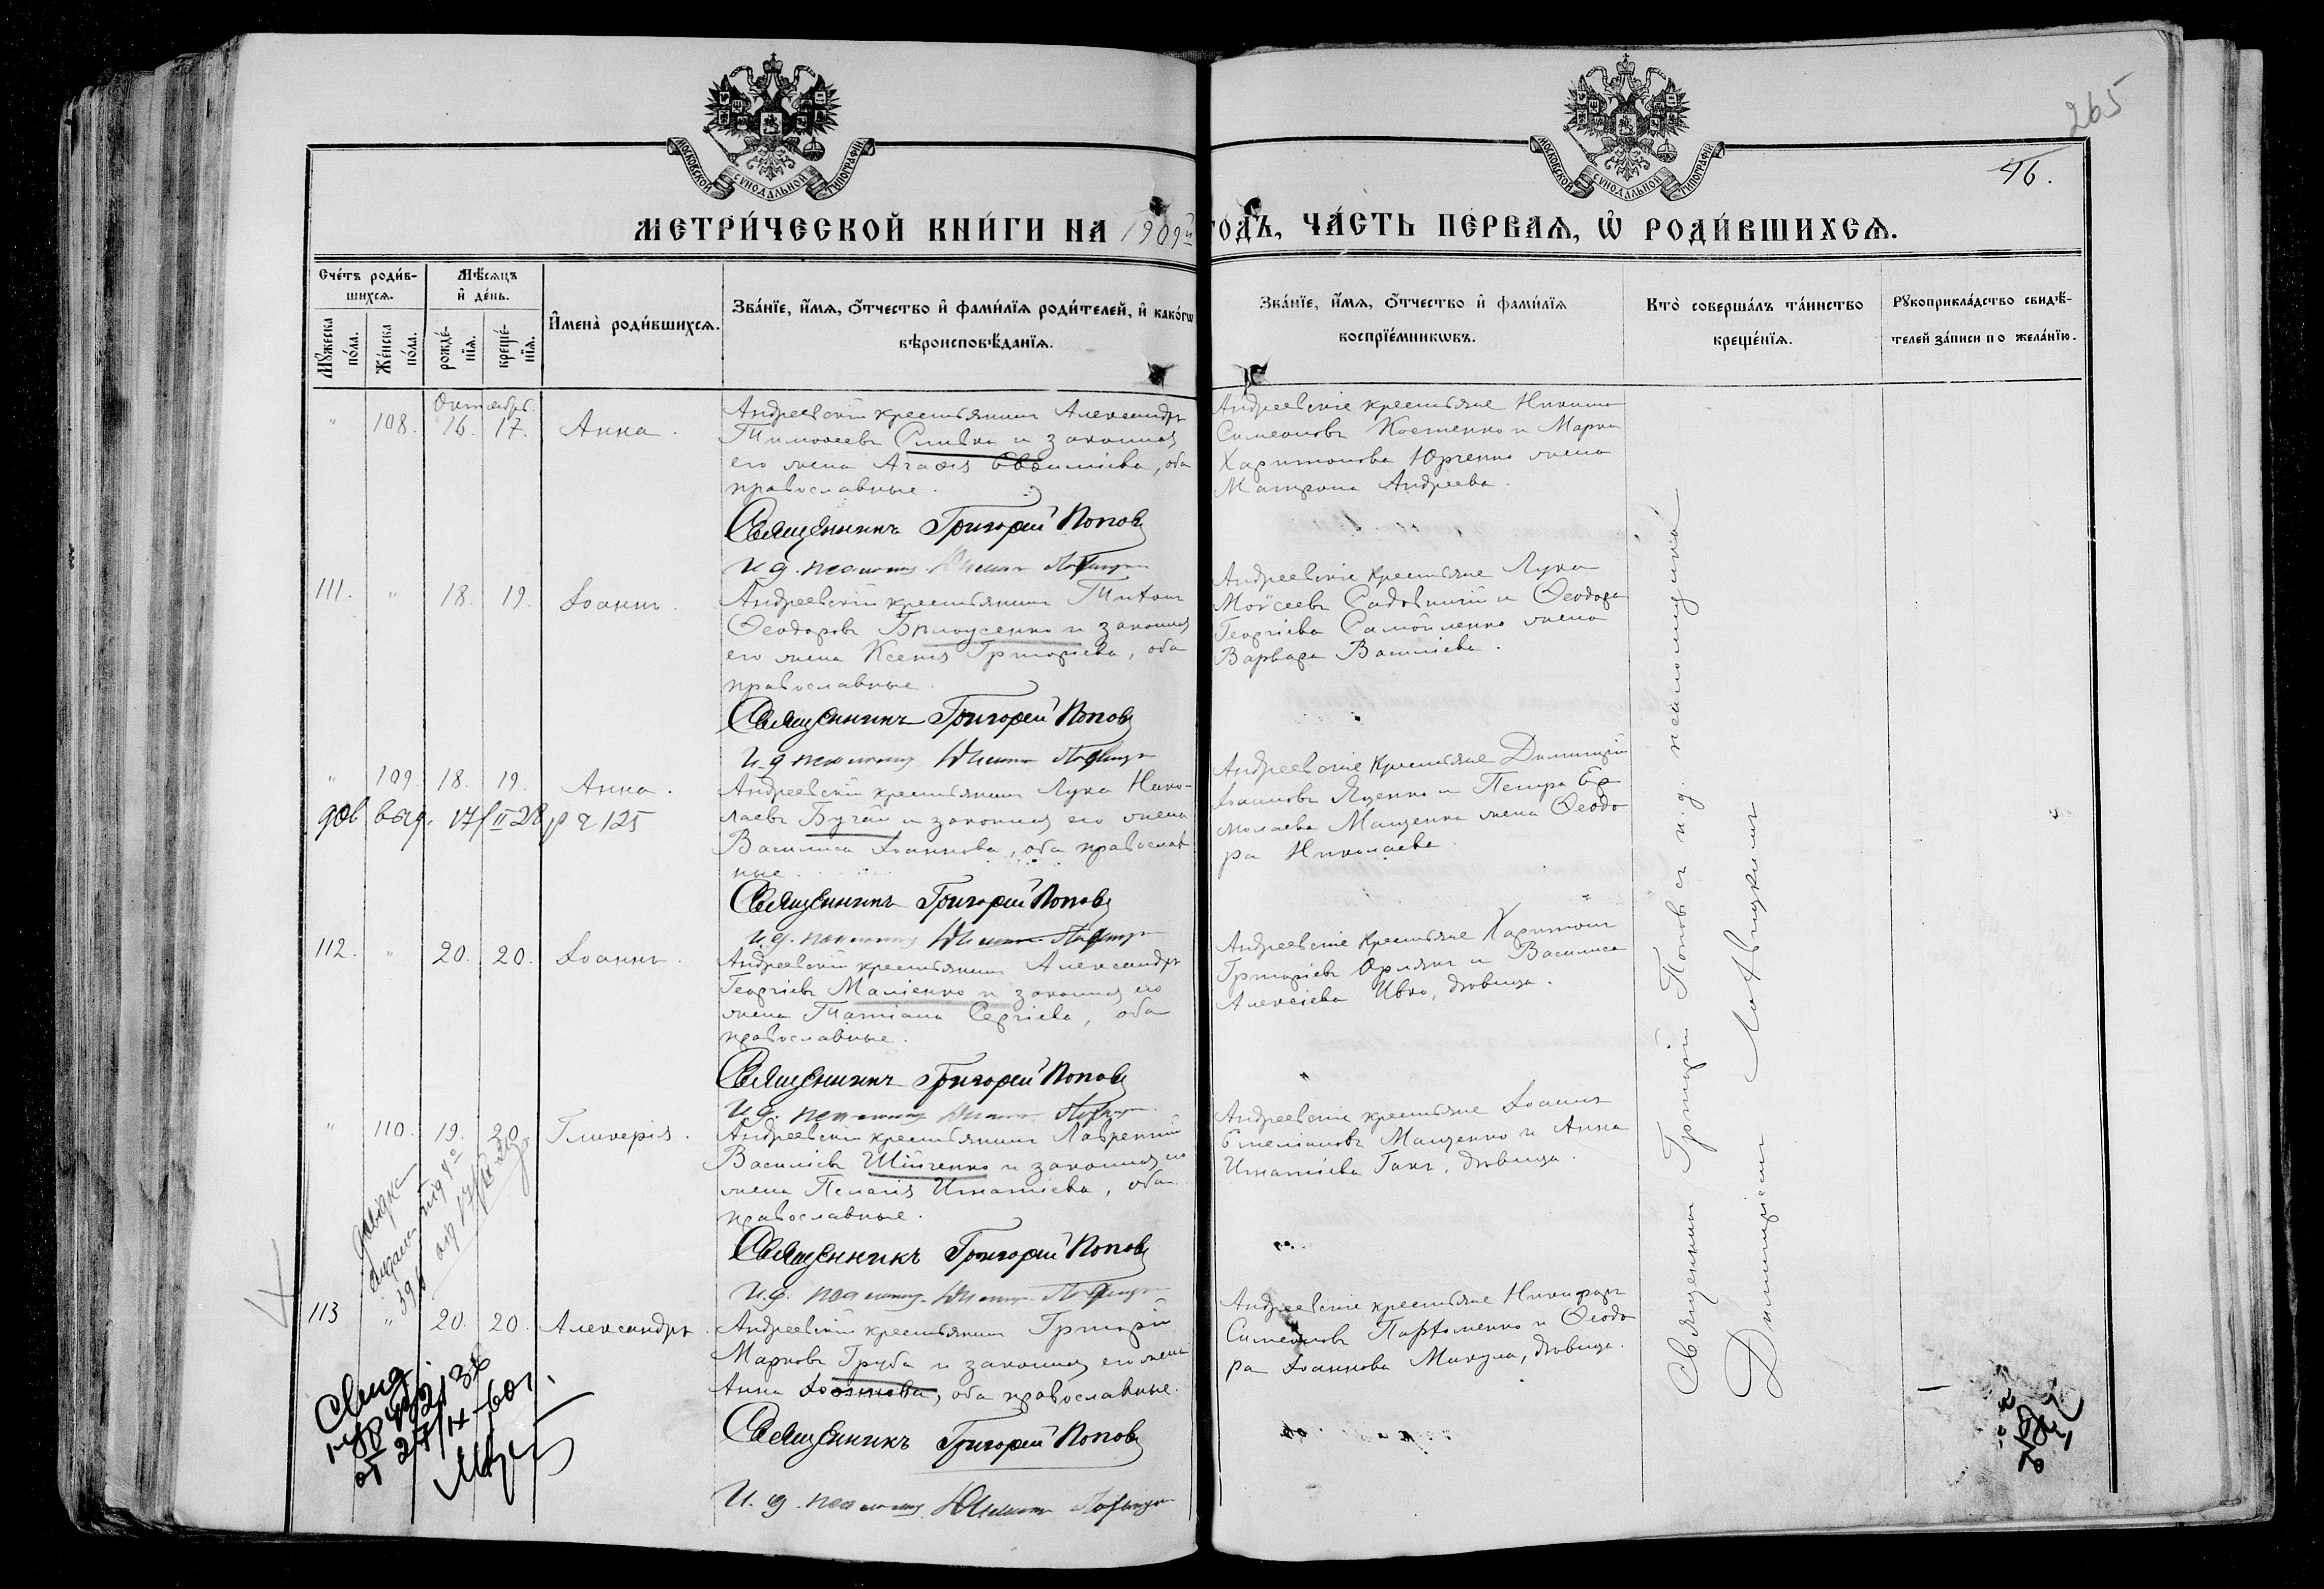 265
46.
МОСКОВСКОЙ СѴНОДАЛЬНОЙ ТИПОГРАФІИ
МОСКОВСКОЙ СѴНОДАЛЬНОЙ ТИПОГРАФІИ
МЕТРИ́ЧЕСКОЙ КНИ́ГИ НА 1909й ГОДЪ, ЧА́СТЬ ПЕ́РВАѦ, Ѡ҆ РОДИ́ВШИХСѦ.
Сче́тъ роди́в-
шихсѧ.
Мꙋ́жеска по́ла.
Же́нска по́ла.
Мѣ́сѧцъ
и҆ де́нь.
рожде́-
нїѧ.
креще́-
нїѧ.
И҆мена̀ роди́вшихсѧ.
Зва́нїе, и҆́мѧ, ѻ҆́тчество и҆ фами́лїѧ роди́телей, и҆ како́гѡ
вѣроисповѣ́данїѧ.
Зва́нїе, и҆́мѧ, ѻ҆́тчество и҆ фами́лїѧ
воспрїе́мникѡвъ.
Кто̀ соверша́лъ та́инство
креще́нїѧ.
Рꙋкоприкла́дство свидѣ́-
телей за́писи по жела́нїю.
Октябрь
" 108. 16. 17. Анна.
Андреевскій крестьянинъ Александръ
Тимоѳеевъ Сливка и законная
его жена Агаѳія Евѳиміева, оба
православные.
Священникъ Григорій Поповъ
И. д. псаломщ.
Андреевскіе крестьяне Никита
Симеоновъ Костенко и Марка
Харитонова Юрченко жена
Матрона Андреева.
111. " 18. 19. Іоаннъ.
Андреевскій крестьянинъ Титъ
Ѳеодоровъ Билоусенко и законная
его жена Ксенія Григоріева, оба
православные.
Священникъ Григорій Поповъ
И. д. псаломщ.
Андреевскіе крестьяне Лука
Моѵсеевъ Садовничій и Ѳеодора
Георгіева Самойленко жена
Варвара Василіева.
" 109. 18. 19. Анна.
дов. выд. 17/II 28 р ч 125
Андреевскій крестьянинъ Лука Нико-
лаевъ Бугай и законная его жена
Василиса Іоаннова, оба православ
ные.
Священникъ Григорій Поповъ
И. д. псаломщ.
Андреевскіе крестьяне Димитрій
Іоанновъ Яценко и Петра Ер
молаева Мащенка жена Ѳеодо
ра Николаева
112. " 20. 20. Іоаннъ.
Андреевскій крестьянинъ Александръ
Георгіевъ Маліенко и законная его
жена Татіана Сергіева, оба
православные.
Священникъ Григорій Поповъ
И. д. псаломщ.
Андреевскіе крестьяне Харитонъ
Григоріевъ Орлянъ и Василиса
Алексіева Ивко, дѣвица.
" 110. 19. 20. Гликерія.
Довідка
видана під №
39 17/
Андреевскій крестьянинъ Лаврентій
Василіевъ Шійченко и законная его
жена Пелагія Игнатіева, оба
православные.
Священникъ Григорій Поповъ
И. д. псаломщ.
Андреевскіе крестьяне Іоаннъ
Емеліановъ Мащенко и Анна
Игнатіева Гакъ, дѣвица.
113 " 20. 20. Александръ.
Андреевскій крестьянинъ Григорій
Марковъ Груба и законная его жена
Анна Іоаннова, оба православные.
Священникъ Григорій Поповъ
И. д. псаломщ.
Андреевскіе крестьяне Никифоръ
Симеоновъ Парѳоменко и Ѳеодо
ра Іоаннова Микула, дѣвица.
Свид.
от 27/IX-60 г.
Священникъ Григорій Поповъ съ и. д. псаломщика
Димитріемъ